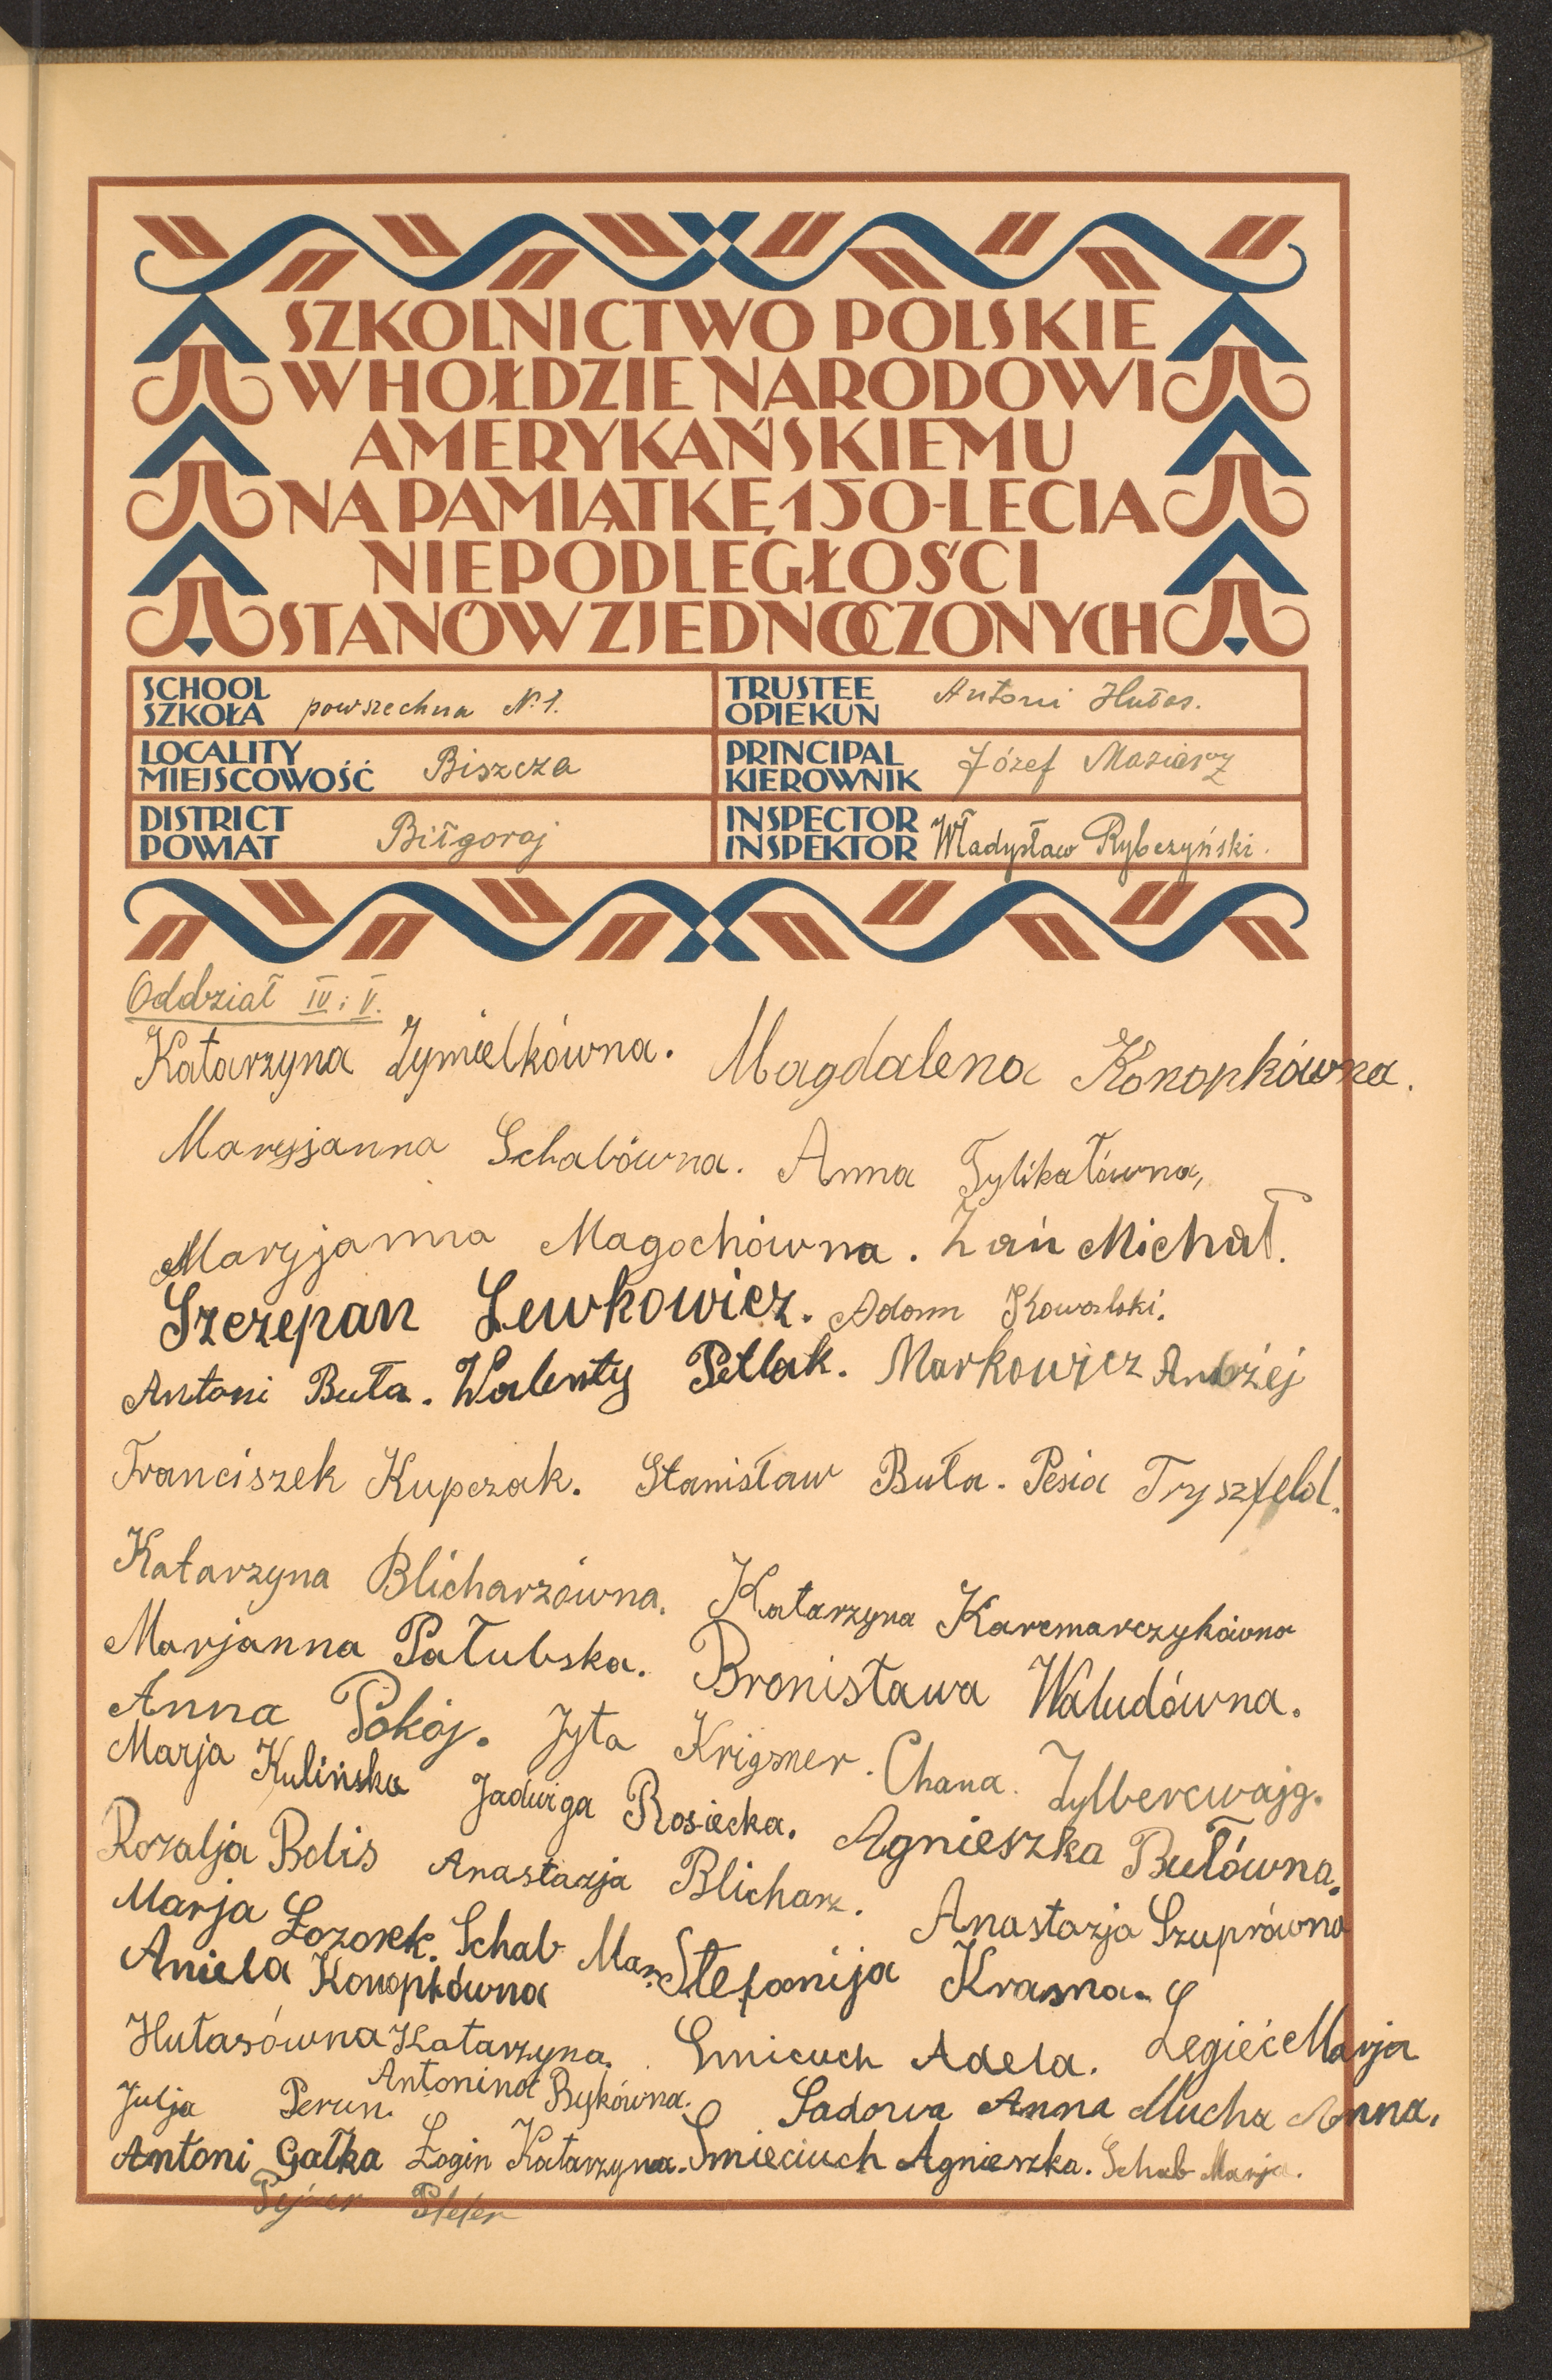 SZKOLNICTWO POLSKIE
W HOŁDZIE NARODOWI
AMERYKAŃSKIEMU
NA PAMIĄTKĘ 150-LECIA
NIEPODLEGŁOŚCI
STANÓW ZJEDNOCZONYCH
SCHOOL
SZKOŁA powszechna N. 1.
TRUSTEE
OPIEKUN Antoni Hułas.
LOCALITY
MIEJSCOWOŚĆ Biszcza
PRINCIPAL
KIEROWNIK Józef Maziarz
DISTRICT
POWIAT Biłgoraj
INSPECTOR
INSPEKTOR Władysław Rybczyński.
Oddział IV i V.
Katarzyna Żymielkówna. Magdalena Konopkówna.
Maryjanna Schabówna. Anna Tylikałówna,
Maryjanna Magochówna. Żań Michał.
Szczepan Lewkowicz. Adam Kowalski.
Antoni Buła. Walenty Petlak. Markowicz Andrzej
Franciszek Kupczak. Stanisław Buła. Pesia Tryszfeld.
Katarzyna Blicharzówna. Katarzyna Karcmarczykówna
Marjanna Pałubska. Bronisława Waludówna.
Anna Pokój. Jyta Krigsner. Chana. Zylbercwajg.
Marja Kulińska Jadwiga Rosiecka. Agnieszka Bułówna.
Rozalja Bdis Anastazja Blicharz. Anastazja Szuprówna
Marja Łozorek. Schab Mar. Stefanija Krasna.
Aniela Konopkówna
Hułasówna Katarzyna. Smiciuch Adela. Legieć Marja
Julja Perun. Antonina Bykówna. Sadowa Anna Mucha Anna.
Antoni Gałka Łogin Katarzyna. Smieciuch Agnieszka. Schab Marja.